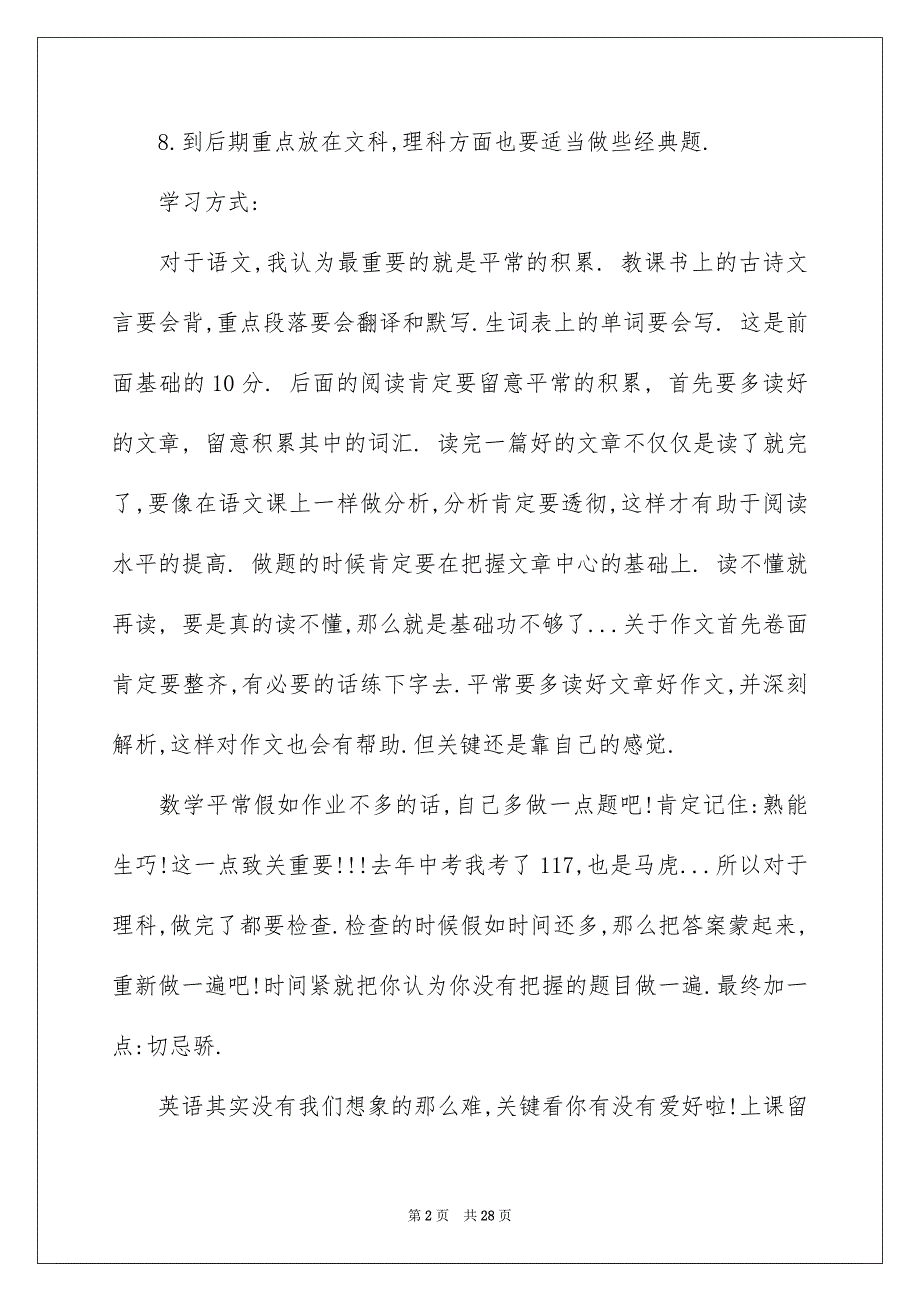 8.到后期重点放在文科,理科方面也要适当做些经典题.
学习方式:
对于语文,我认为最重要的就是平常的积累. 教课书上的古诗文
言要会背,重点段落要会翻译和默写.生词表上的单词要会写. 这是前
面基础的10分. 后面的阅读肯定要留意平常的积累, 首先要多读好
的文章, 留意积累其中的词汇. 读完一篇好的文章不仅仅是读了就完
了,要像在语文课上一样做分析,分析肯定要透彻,这样才有助于阅读
水平的提高. 做题的时候肯定要在把握文章中心的基础上. 读不懂就
再读, 要是真的读不懂,那么就是基础功不够了...关于作文首先卷面
肯定要整齐,有必要的话练下字去.平常要多读好文章好作文,并深刻
解析,这样对作文也会有帮助.但关键还是靠自己的感觉.
数学平常假如作业不多的话,自己多做一点题吧!肯定记住:熟能
生巧!这一点致关重要!!!去年中考我考了117,也是马虎...所以对于
理科,做完了都要检查.检查的时候假如时间还多,那么把答案蒙起来,
重新做一遍吧!时间紧就把你认为你没有把握的题目做一遍.最终加一
点:切忌骄.
英语其实没有我们想象的那么难,关键看你有没有爱好啦!上课留
第2页 共28页